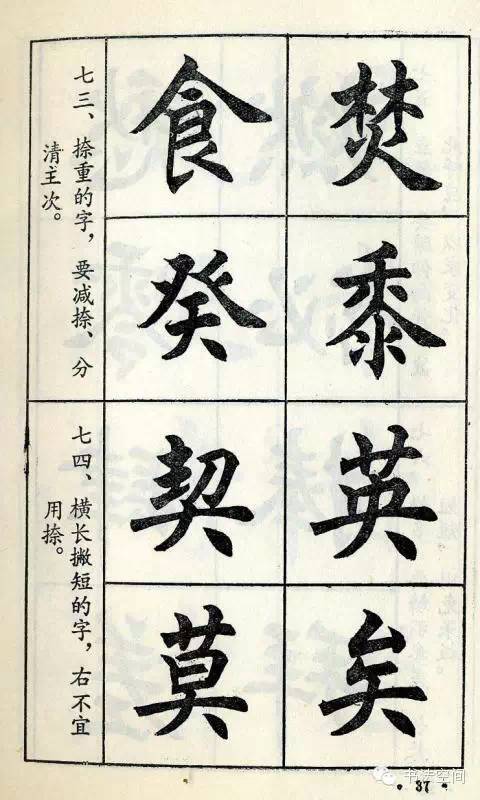 七三、捺重的字，要减捺、分
清主次。
焚
黍
食
癸
七四、横长撇短的字，右不宜
用捺。
英
矣
契
莫
·37·
书法空间